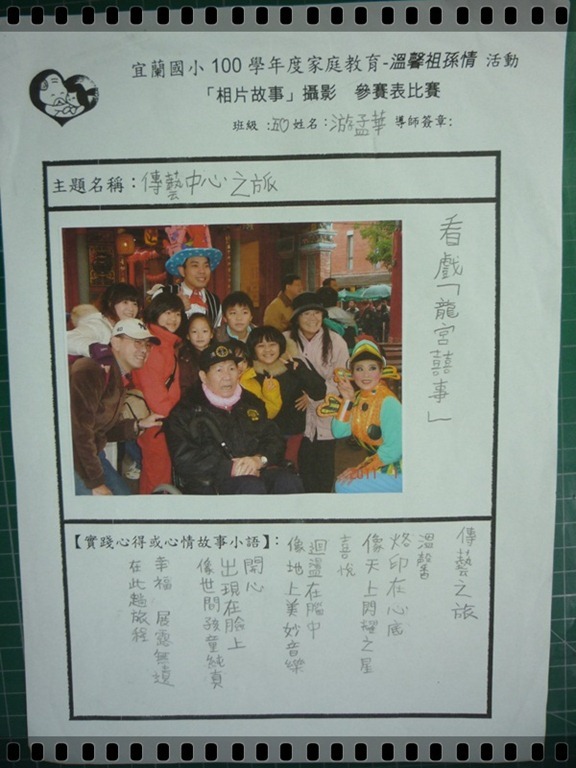 宜蘭國小 100 學年度家庭教育-溫馨祖孫情 活動
「相片故事」攝影 參賽表比賽
班級：五 姓名：游孟華 導師簽章：
主題名稱：傳藝中心之旅
看戲「龍宮囍事」
2011
【實踐心得或心情故事小語】：
傳藝之旅
溫馨
烙印在心底
像天上閃耀之星
喜悅
迴盪在腦中
像地上美妙音樂
開心
出現在臉上
像世間孩童純真
幸福 展露無遺
在此趟旅程